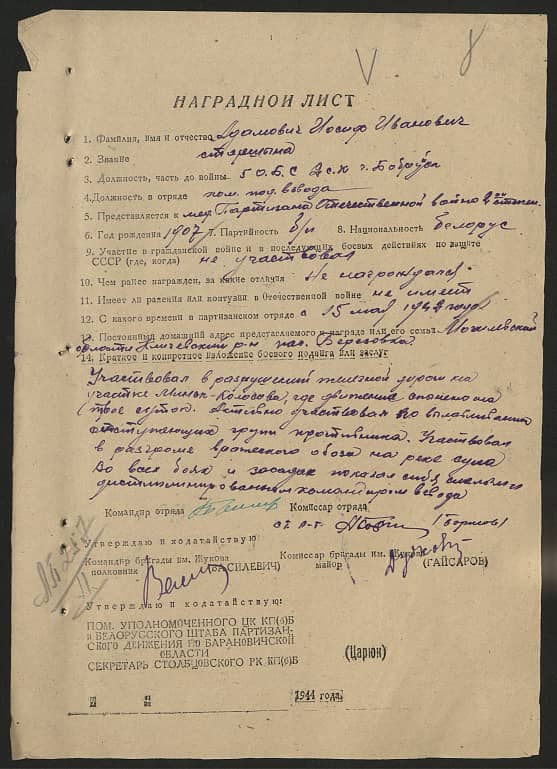 8
НАГРАДНОЙ ЛИСТ
1. Фамилия, имя и отчество Адамович Иосиф Иванович
2. Звание старшина
3. Должность, часть до войны 5 О.Б.С г. Бобруйск
4. Должность в отряде пом. ком. взвода
5. Представляется к мед. Партизана Отечественной войны 2й степени
6. Год рождения 1907 7. Партийность б/п 8. Национальность белорус
9. Участие в гражданской войне и в последующих боевых действиях по защите
СССР (где, когда) не участвовал
10. Чем ранее награжден, за какие отличия Не награждался
11. Имеет ли ранения или контузии в Отечественной войне не имеет
12. С какого времени в партизанском отряде с 15 мая 1942 года
13. Постоянный домашний адрес представляемого к награде или его семьи Могилевской
области Кличевский р-н Березовка
14. Краткое и конкретное изложение боевого подвига или заслуг
Участвовал в разрушении железной дороги на
участке Минск-Колосово, где движение
суток. Активно участвовал по
отступающих групп противника. Участвовал
в разгроме вражеского обоза на реке Сула
Во всех боях и засадах показал себя смелым
дисциплинированным командиром взвода
Командир отряда Комиссар отряда
Утверждаю и ходатайствую
Командир бригады им. Жукова Комиссар бригады им. Жукова
полковник (ВАСИЛЕВИЧ) майор (ГАЙСАРОВ)
Утверждаю и ходатайствую:
ПОМ. УПОЛНОМОЧЕННОГО ЦК КП(б)Б
и БЕЛОРУССКОГО ШТАБА ПАРТИЗАН-
СКОГО ДВИЖЕНИЯ ПО БАРАНОВИЧСКОЙ
ОБЛАСТИ
СЕКРЕТАРЬ СТОЛБЦОВСКОГО РК КП(б)Б
(Царюк)
1944 года.